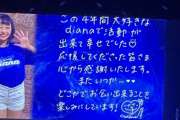 この4年間大好きな
dianaで活動が
出来て幸せでした
応援してくださった皆さま
心から感謝いたします。
またいつか
どこかでお会い出来ることを
楽しみにしています！
diana